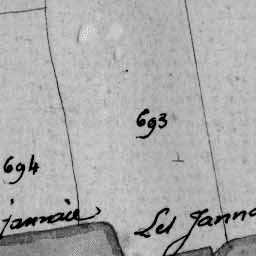 693
694
jannaie
Les Janna